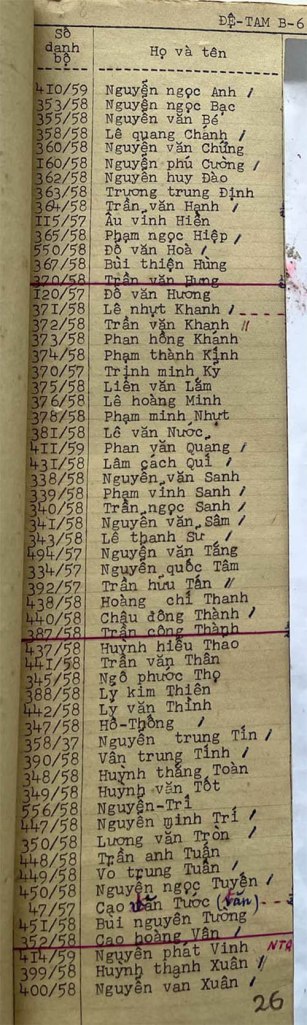 ĐỆ-TAM B-6
Số danh bộ Họ và tên
410/59 Nguyễn ngọc Anh /
353/58 Nguyễn ngọc Bạc
355/58 Nguyễn văn Bé
358/58 Lê quang Chánh /
360/58 Nguyễn văn Chừng
I60/58 Nguyễn phú Cường /
362/58 Nguyễn huy Đào
363/58 Trương trung Định
364/58 Trần văn Hạnh /
II5/57 Âu vinh Hiển
365/58 Phạm ngọc Hiệp /
550/58 Đỗ văn Hoà /
367/58 Bùi thiện Hùng
370/58 Trần văn Hưng
I20/57 Đỗ văn Hương
37I/58 Lê nhựt Khanh /
372/58 Trần văn Khanh //
373/58 Phan hồng Khánh
374/58 Phạm thành Kỉnh
370/57 Trịnh minh Ký
375/58 Liên văn Lắm
376/58 Lê hoàng Minh
378/58 Phạm minh Nhựt
38I/58 Lê văn Nước
4II/59 Phan văn Quang /
43I/58 Lâm cách Quí /
338/58 Nguyễn văn Sanh
339/58 Phạm vinh Sanh /
340/58 Trần ngọc Sanh /
34I/58 Nguyễn văn Sâm /
343/58 Lê thanh Sư /
494/57 Nguyễn văn Tăng
334/57 Nguyễn quốc Tâm
392/57 Trần hữu Tấn //
438/58 Hoàng chí Thanh
440/58 Châu đông Thành /
387/58 Trần công Thành
437/58 Huỳnh hiếu Thao
44I/58 Trần văn Thân
345/58 Ngô phước Thọ
388/58 Lý kim Thiên
442/58 Lý văn Thình
347/58 Hồ-Thông /
358/37 Nguyễn trung Tín /
390/58 Văn trung Tính /
348/58 Huỳnh thắng Toàn
349/58 Huỳnh văn Tốt
556/58 Nguyễn-Trí
447/58 Nguyễn minh Trí /
350/58 Lương văn Tròn /
448/58 Trần anh Tuấn
449/58 Võ trung Tuấn /
450/58 Nguyễn ngọc Tuyền /
47/57 Cao văn Tước (văn)
45I/58 Bùi nguyên Tường
352/58 Cao hoàng Vân /
4I4/59 Nguyễn phát Vinh NTA
399/58 Huỳnh thạnh Xuân //
400/58 Nguyễn van Xuân /
26